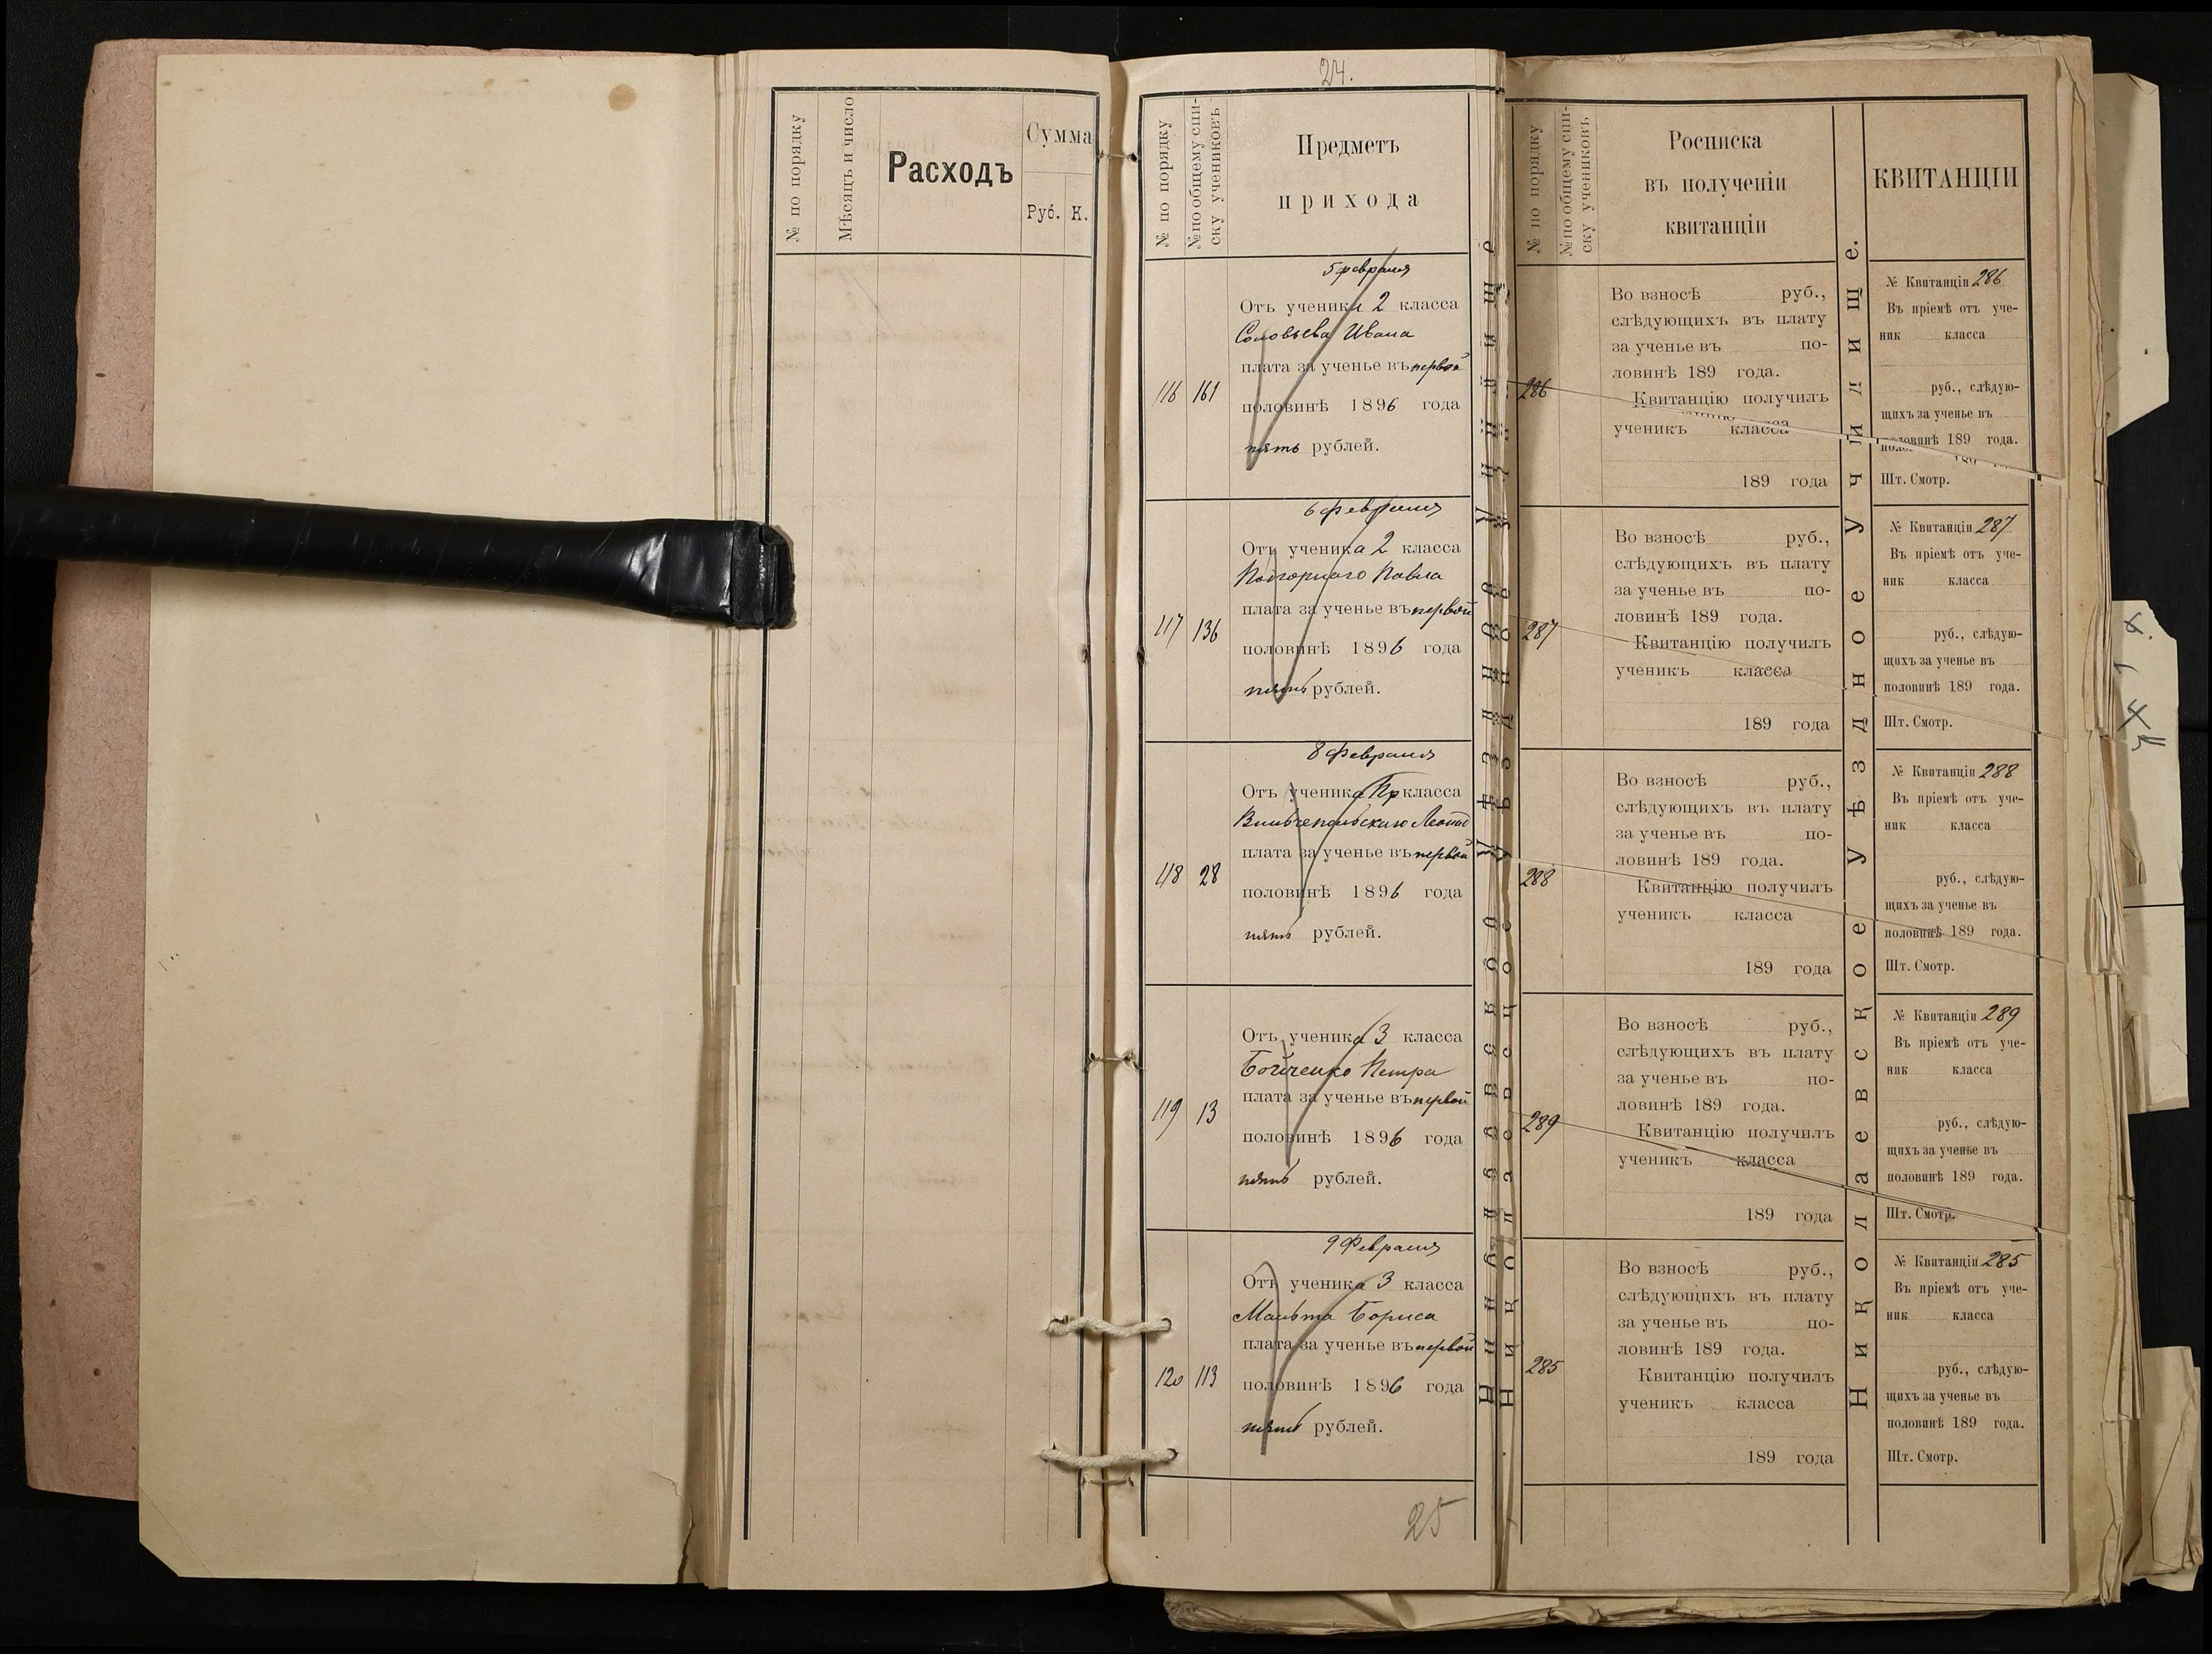 № по порядку
Мѣсяцъ и число
Расходъ
Сумма
Руб. К.
24.
№ по порядку
№ по общему спи-
ску учениковъ
Предметъ
прихода
5 февраля
Отъ ученика 2 класса
Соловьева Ивана
плата за ученье въ первой
116 161
половинѣ 1896 года
пять рублей.
6 февраля
Отъ ученика 2 класса
Подгорного Павла
плата за ученье въ первой
117 136
половинѣ 1896 года
пять рублей.
8 февраля
Отъ ученика Пр класса
плата за ученье въ первой
118 28
половинѣ 1896 года
пять рублей.
Отъ ученика 3 класса
Бойченко Петра
плата за ученье въ первой
119 13
половинѣ 1896 года
пять рублей.
9 февраля
Отъ ученика 3 класса
Мальта Бориса
плата за ученье въ первой
120 113
половинѣ 1896 года
пять рублей.
25
№ по порядку
№ по общему спи-
ску учениковъ
Росписка
въ полученіи
квитанціи
286
Во взносѣ руб.,
слѣдующихъ въ плату
за ученье въ по-
ловинѣ 189 года.
Квитанцію получилъ
ученикъ класса
189 года
287
Во взносѣ руб.,
слѣдующихъ въ плату
за ученье въ по-
ловинѣ 189 года.
Квитанцію получилъ
ученикъ класса
189 года
288
Во взносѣ руб.,
слѣдующихъ въ плату
за ученье въ по-
ловинѣ 189 года.
Квитанцію получилъ
ученикъ класса
189 года
289
Во взносѣ руб.,
слѣдующихъ въ плату
за ученье въ по-
ловинѣ 189 года.
Квитанцію получилъ
ученикъ класса
189 года
285
Во взносѣ руб.,
слѣдующихъ въ плату
за ученье въ по-
ловинѣ 189 года.
Квитанцію получилъ
ученикъ класса
189 года
Николаевское Уѣздное Училище.
КВИТАНЦІИ
№ Квитанціи 286
Въ пріемѣ отъ уче-
ник класса
руб., слѣдую-
щихъ за ученье въ
половинѣ 189 года.
Шт. Смотр.
№ Квитанціи 287
Въ пріемѣ отъ уче-
ник класса
руб., слѣдую-
щихъ за ученье въ
половинѣ 189 года.
Шт. Смотр.
№ Квитанціи 288
Въ пріемѣ отъ уче-
ник класса
руб., слѣдую-
щихъ за ученье въ
половинѣ 189 года.
Шт. Смотр.
№ Квитанціи 289
Въ пріемѣ отъ уче-
ник класса
руб., слѣдую-
щихъ за ученье въ
половинѣ 189 года.
Шт. Смотр.
№ Квитанціи 285
Въ пріемѣ отъ уче-
ник класса
руб., слѣдую-
щихъ за ученье въ
половинѣ 189 года.
Шт. Смотр.